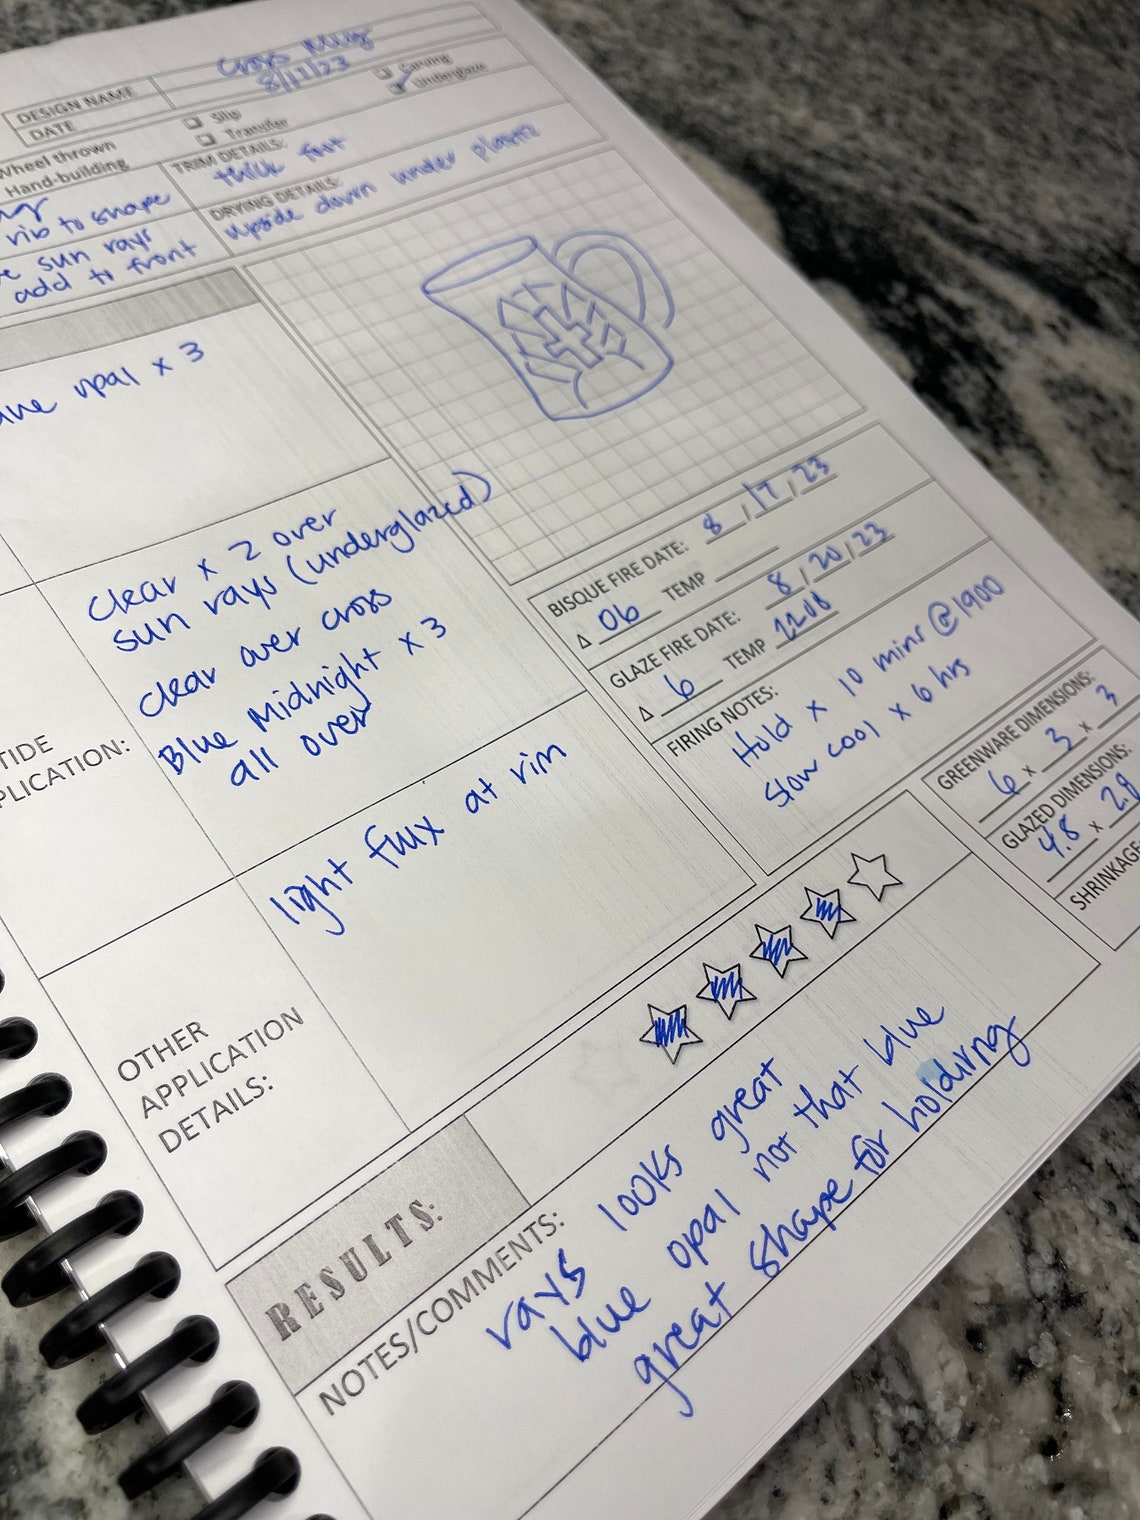 DESIGN NAME
Cross Mug
DATE
8/17/23
Wheel thrown
Hand-building
Slip
Transfer
Carving
Underglaze
rib to shape
sun rays
add to front
TRIM DETAILS:
thick foot
DRYING DETAILS:
upside down under plastic
opal x 3
clear x 2 over
sun rays (underglazed)
clear over cross
Blue Midnight x 3
all over
light flux at rim
OTHER
APPLICATION
DETAILS:
BISQUE FIRE DATE: 8 / 17 / 23
Δ 06 TEMP
GLAZE FIRE DATE: 8 / 20 / 23
Δ 6 TEMP 2208
FIRING NOTES:
Hold x 10 mins @ 1900
Slow cool x 6 hrs
GREENWARE DIMENSIONS:
6 x 3 x 3
GLAZED DIMENSIONS:
4.8 x 2.8
SHRINKAGE
RESULTS:
NOTES/COMMENTS:
rays looks great
blue opal not that blue
great shape for holding